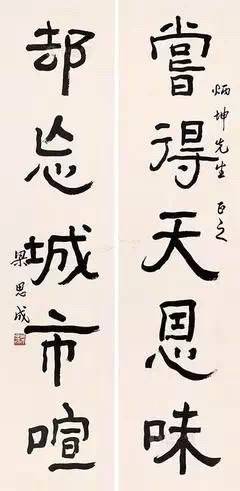 嘗得天恩味
炳坤先生 正之
却忘城市喧
梁思成